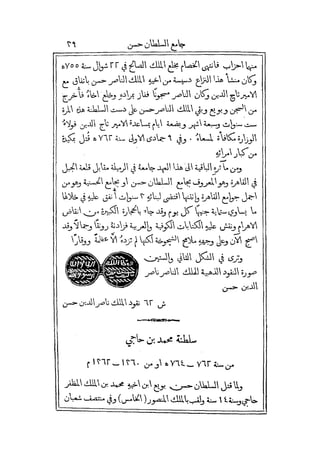 جامع السلطان حسن
٣٩
منها احزاب فانتهى الخصام بخلع الملك الصالح في ٢٢ شوال سنة ٧٥٥ ه
وكان منشأ هذا النزاع دسيسة من اخيه الملك الناصر حسن باتفاق مع
الامير تاج الدين وكان الناصر مسجونًا ففاز بمراده وخلع اخاه فأخرج
من السجن وبويع وبقي الملك الناصر حسن على دست السلطنة هذه المرة
ست سنوات وسبعة اشهر وبضعة ايام بمساعدة الامير تاج الدين فولاه
الوزارة مكافأة لمسعاه ٠ وفي ٩ جمادى الاولى سنة ٧٦٢ ه قُتل بمكيدة
من كبار امرائه
ومن مآثره الباقية الى هذا العهد جامعة في الرميلة مقابل قلعة الجبل
في القاهرة وهو المعروف بجامع السلطان حسن او بجامع الحسنية وهو من
اجمل جوامع القاهرة واتقنها اقتضى لبنائه ٣ سنوات أنفق عليه في خلالها
ما يساوي ستماية جنيهًا كل يوم وقد جاء بالحجارة الكبيرة من انقاض
الاهرام ونقش عليه الكتابات الكوفية والعربية فزادته رونقًا وجمالاً وقد
اصبح الآن وعلى وجهه ملامح الشيخوخة لكنها لم تزده الا عظمة ووقارًا
وترى في الشكل الثاني والستين
صورة النقود الذهبية للملك الناصر ناصر
الدين حسن
ش ٦٢ نقود الملك ناصر الدين حسن
سلطنة محمد بن حاجي
من سنة ٧٦٢ — ٧٦٤ ه او من ١٣٦٠ — ١٣٦٢ م
ولما قتل السلطان حسن بويع ابن اخيه محمد بن الملك المظفر
حاجي وسنه ١٤ سنة ولقب بالملك المنصور (الخامس) وفي منتصف شعبان